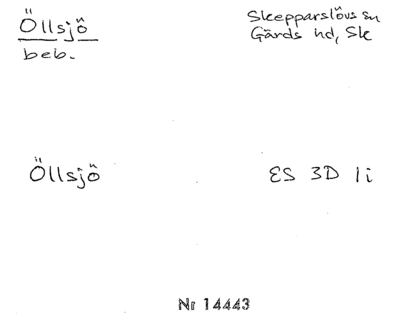 Öllsjö
beb.
Skepparslövs sn
Gärds hd, Sk
Öllsjö
ES 3D 1i
Nr 14443